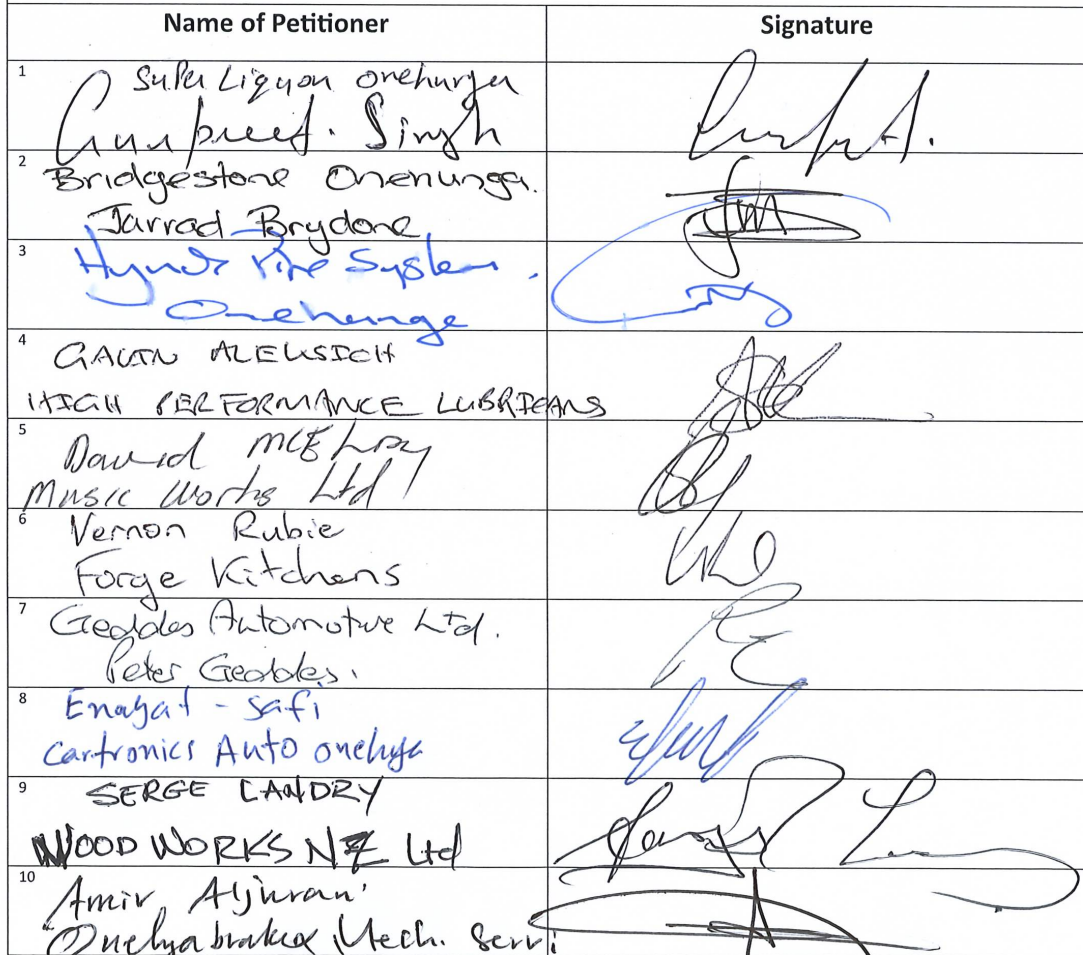 Name of Petitioner Signature
1 Super Liquor onehunga
Gurpreet. Singh
2 Bridgestone Onehunga.
Jarrad Brydone
3 Hynds Pipe System.
Onehunga
4 GAVIN ALEKSICH
HIGH PERFORMANCE LUBRICANS
5 David McElroy
Music Works Ltd
6 Vernon Rubie
Forge Kitchens
7 Geddes Automotive Ltd.
Peter Geddes.
8 Enayat - Safi
Cartronics Auto
9 SERGE LANDRY
WOOD WORKS NZ Ltd
10 Amir
Mech. Servi